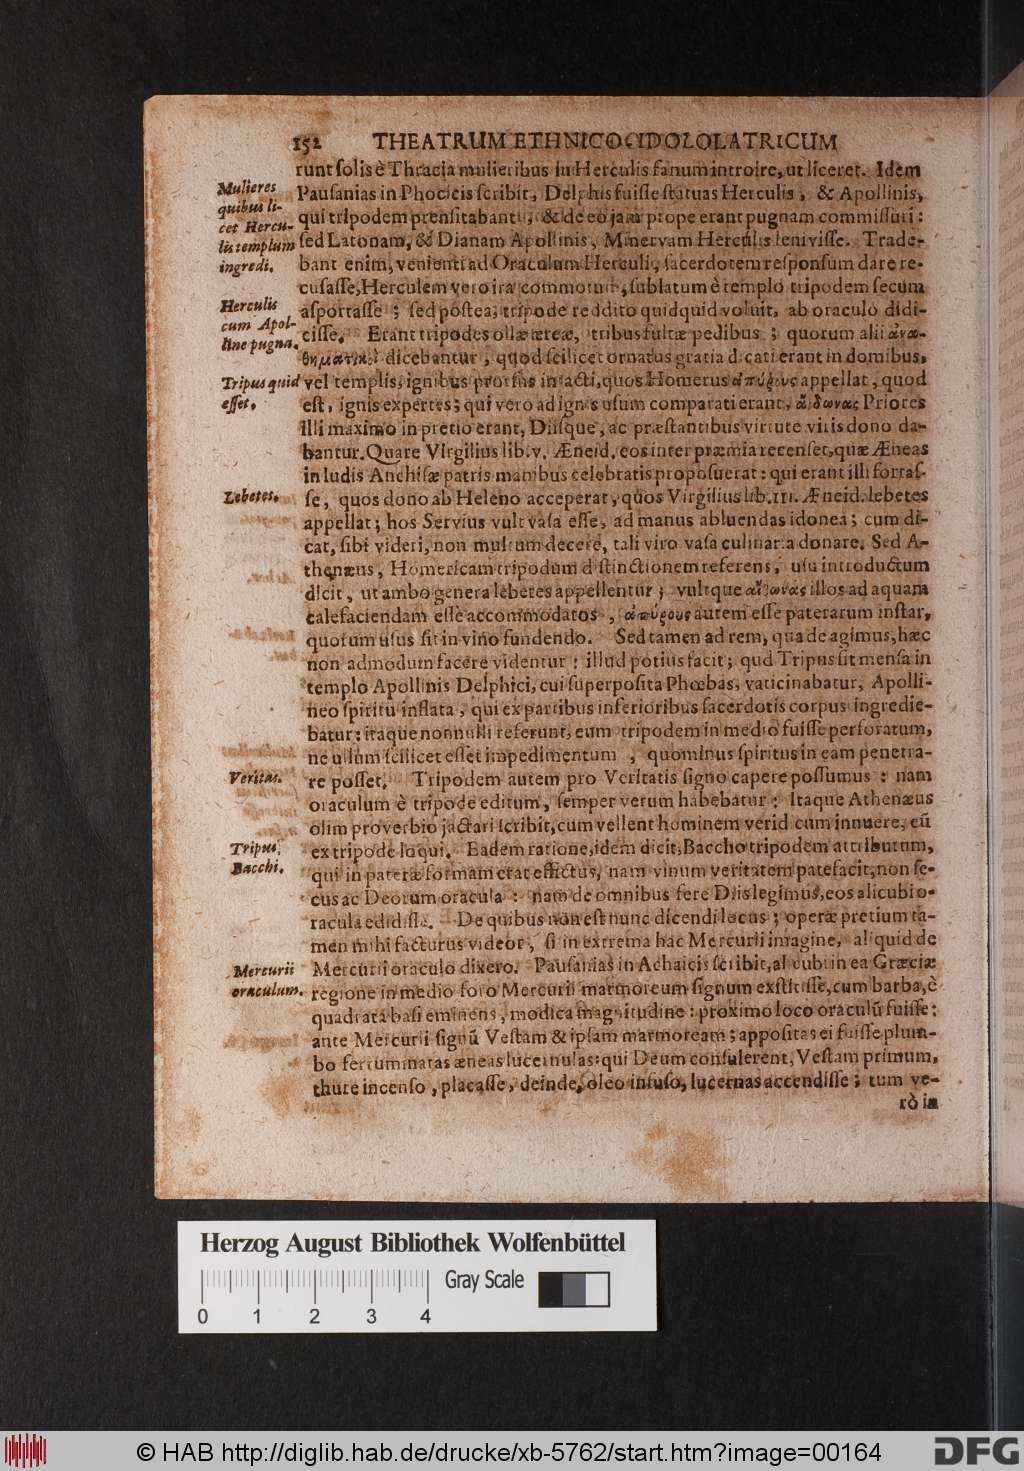 152 THEATRUM ETHNICO-IDOLOLATRICUM
runt solis è Thracia mulieribus in Herculis fanum introire, ut liceret. Idem
Mulieres
quibus li-
cet Hercu-
lis templum
ingredi.
Pausanias in Phocicis scribit, Delphis fuisse statuas Herculis, & Apollinis,
qui tripodem prensitabant; & de eo jam prope erant pugnam commissuri:
sed Latonam, & Dianam Apollinis, Minervam Herculis lenivisse. Trade-
bant enim, venienti ad Oraculum Herculi, sacerdotem responsum dare re-
cusasse, Herculem vero ira commotum, sublatum è templo tripodem secum
Herculis
cum Apol-
line pugna.
asportasse; sed postea, tripode reddito quidquid voluit, ab oraculo didi-
cisse. Erant tripodes ollæ æreæ, tribus fultæ pedibus; quorum alii ἀνα-
θηματικοὶ dicebantur, quod scilicet ornatus gratia dicati erant in domibus,
Tripus quid
esset.
vel templis, ignibus prorsus intacti, quos Homerus ἀπύρους appellat, quod
est, ignis expertes; qui vero ad ignis usum comparati erant, Priores
illi maximo in pretio erant, Diisque, ac præstantibus virtute viris dono da-
bantur. Quare Virgilius lib. v. Æneid. eos inter præmia recenset, quæ Æneas
in ludis Anchisæ patris manibus celebratis proposuerat: qui erant illi fortas-
Lebetes.
se, quos dono ab Heleno acceperat, quos Virgilius lib. III. Æneid. lebetes
appellat; hos Servius vult vasa esse, ad manus abluendas idonea; cum di-
cat, sibi videri, non multum decere, tali viro vasa culinaria donare. Sed A-
thenæus, Homericam tripodum distinctionem referens, usu introductum
dicit, ut ambo genera lebetes appellentur; vultque illos ad aquam
calefaciendam esse accommodatos, ἀπύρους autem esse paterarum instar,
quorum usus sit in vino fundendo. Sed tamen ad rem, qua de agimus, hæc
non admodum facere videntur: illud potius facit; qud Tripus sit mensa in
templo Apollinis Delphici, cui superposita Phœbas, vaticinabatur, Apolli-
neo spiritu inflata, qui ex partibus inferioribus sacerdotis corpus ingredie-
batur: itaque nonnulli referunt, eum tripodem in medio fuisse perforatum,
ne ullum scilicet esset impedimentum, quominus spiritus in eam penetra-
Veritas.
re posset. Tripodem autem pro Veritatis signo capere possumus: nam
oraculum è tripode editum, semper verum habebatur: Itaque Athenæus
olim proverbio jactari scribit, cum vellent hominem veridicum innuere, eũ
Tripus
Bacchi.
ex tripode loqui. Eadem ratione, idem dicit, Baccho tripodem attributum,
qui in pateræ formam erat effictus, nam vinum veritatem patefacit, non se-
cus ac Deorum oracula: nam de omnibus fere Diis legimus, eos alicubi o-
racula edidisse. De quibus non est nunc dicendi locus; operæ pretium ta-
men mihi facturus videor, si in extrema hac Mercurii imagine, aliquid de
Mercurii
oraculum.
Mercurii oraculo dixero. Pausanias in Achaicis scribit, alicubi in ea Græciæ
regione in medio foro Mercurii marmoreum signum exstitisse, cum barba, è
quadrata basi eminens, modica magnitudine: proximo loco oraculũ fuisse:
ante Mercurii signũ Vestam & ipsam marmoream; appositas ei fuisse plum-
bo ferruminatas æneas lucernulas: qui Deum consulerent, Vestam primum,
thure incenso, placasse, deinde, oleo infuso, lucernas accendisse; tum ve-
rò in
Herzog August Bibliothek Wolfenbüttel
Gray Scale
0 1 2 3 4
© HAB http://diglib.hab.de/drucke/xb-5762/start.htm?image=00164
DFG